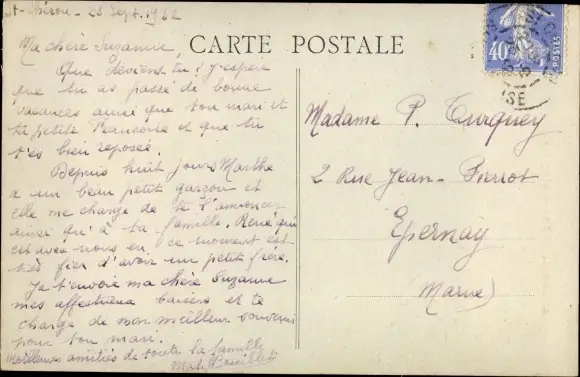 23 Sept. 1932
Ma chère Suzanne,
Que deviens tu? J'espère
que tu as passé de bonne
vacances ainsi que ton mari et
ta petite Francoise et que tu
t'es bien reposée.
Depuis huit jours Marthe
a un beau petit garçon et
elle me charge de te l'annoncer
ainsi qu'à ta famille. René qui
est avec nous en ce moment est
très fier d'avoir un petit frère.
Je t'envoie ma chère Suzanne
mes affectueux baisers et te
charge de mon meilleur souvenir
pour ton mari.
Meilleures amitiés de toute la famille
CARTE POSTALE
40c
POSTES
Madame P. Turquey
2 Rue Jean-Pierrot
Epernay
(Marne)